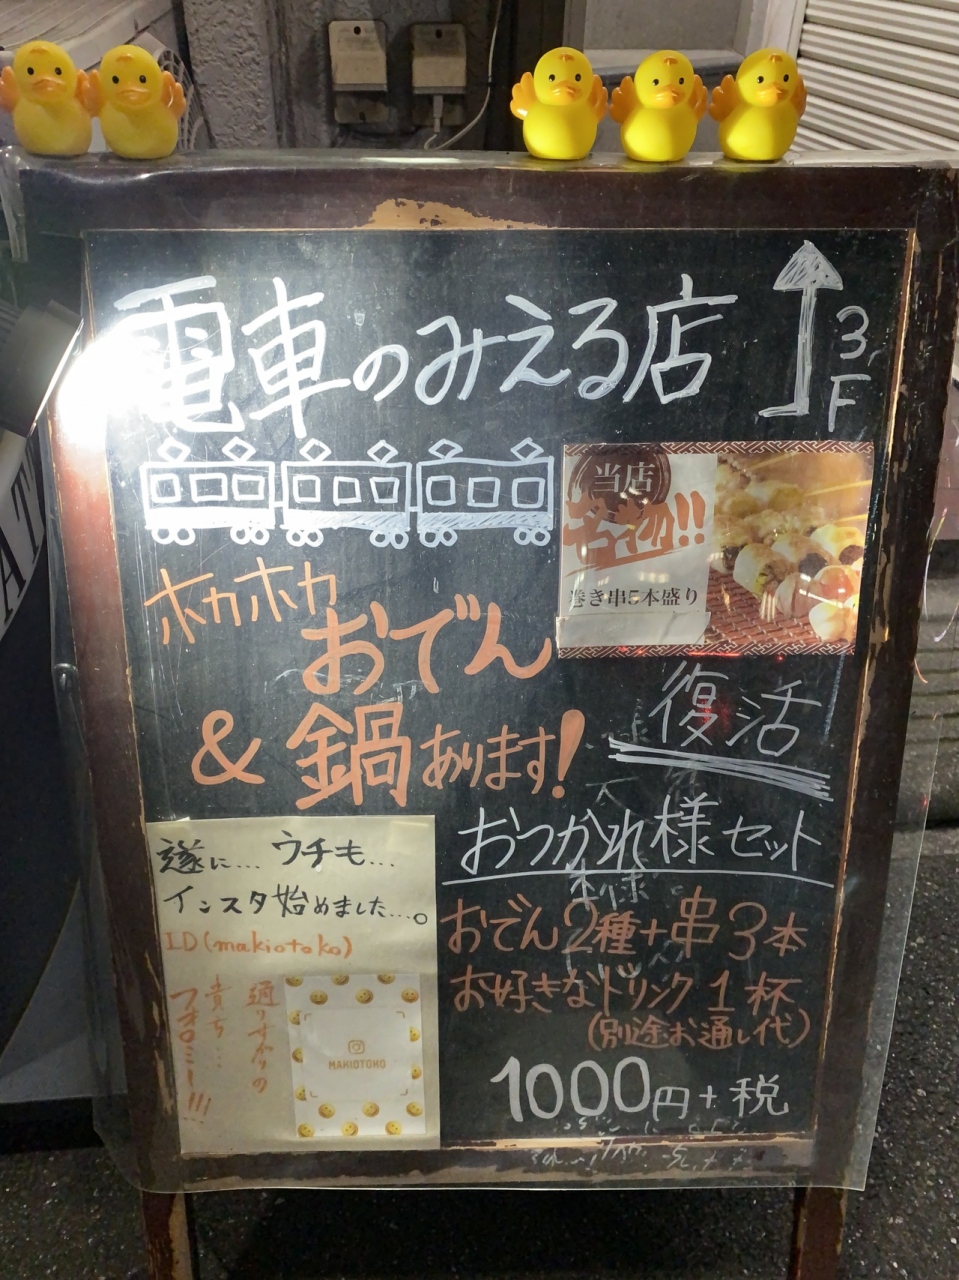 電車のみえる店
3F
当店
名物!!
巻き串5本盛り
ホカホカ
おでん
&鍋あります!
復活
おつかれ様セット
おでん2種+串3本
お好きなドリンク1杯
(別途お通し代)
1000円+税
遂に…ウチも…
インスタ始めました…。
ID(makiotoko)
通りすがりの
貴方…
フォロミー!!!
MAKIOTOKO